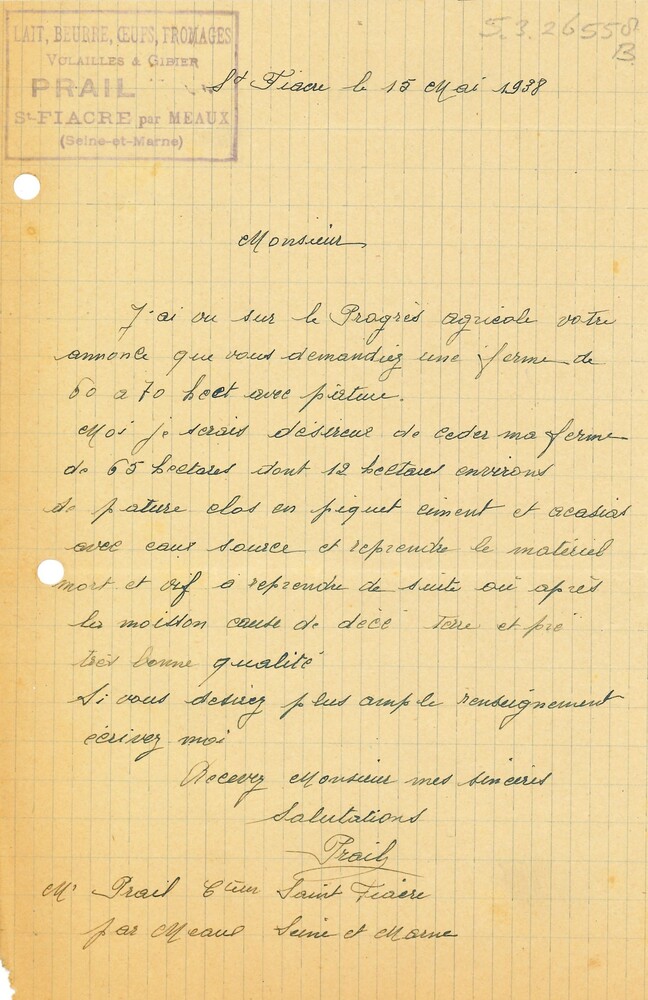 LAIT, BEURRE, ŒUFS, FROMAGES
VOLAILLES & GIBIER
PRAIL
St-FIACRE par MEAUX
(Seine-et-Marne)
5.3.26558
B
St Fiacre le 15 Mai 1938
Monsieur
J'ai vu sur le Progrès agricole votre
annonce que vous demandiez une ferme de
60 a 70 hect avec pature.
Moi je serais désireux de ceder ma ferme
de 65 hectares dont 12 hectares environs
de pature clos en piquet ciment et acasias
avec eaux source et reprendre le matériel
mort et vif a reprendre de suite ou après
la moisson cause de décé Terre et pré
très bonne qualité
Si vous desirez plus ample renseignement
écrivez moi
Recevez Monsieur mes sincères
Salutations
Prail
Mr Prail Cteur Saint Fiacre
par Meaux Seine et Marne